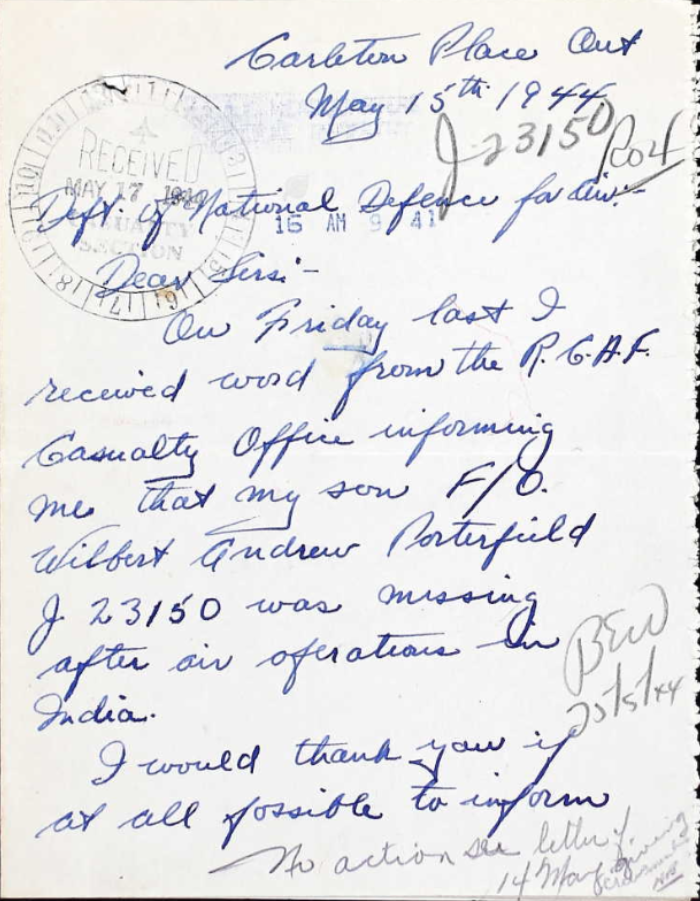 Carleton Place Ont
May 15th 1944
J 23150
RECEIVED
MAY 17
CASUALTY
SECTION
16 AM 9 41
Dept. of National Defence for Air:-
Dear Sirs:-
On Friday last I
received word from the R.C.A.F.
Casualty Office informing
me that my son F/O.
Wilbert Andrew Porterfield
J 23150 was missing
after air operations in
India.
BEW
20/5/44
I would thank you if
at all possible to inform
No action see letter of
14 May giving